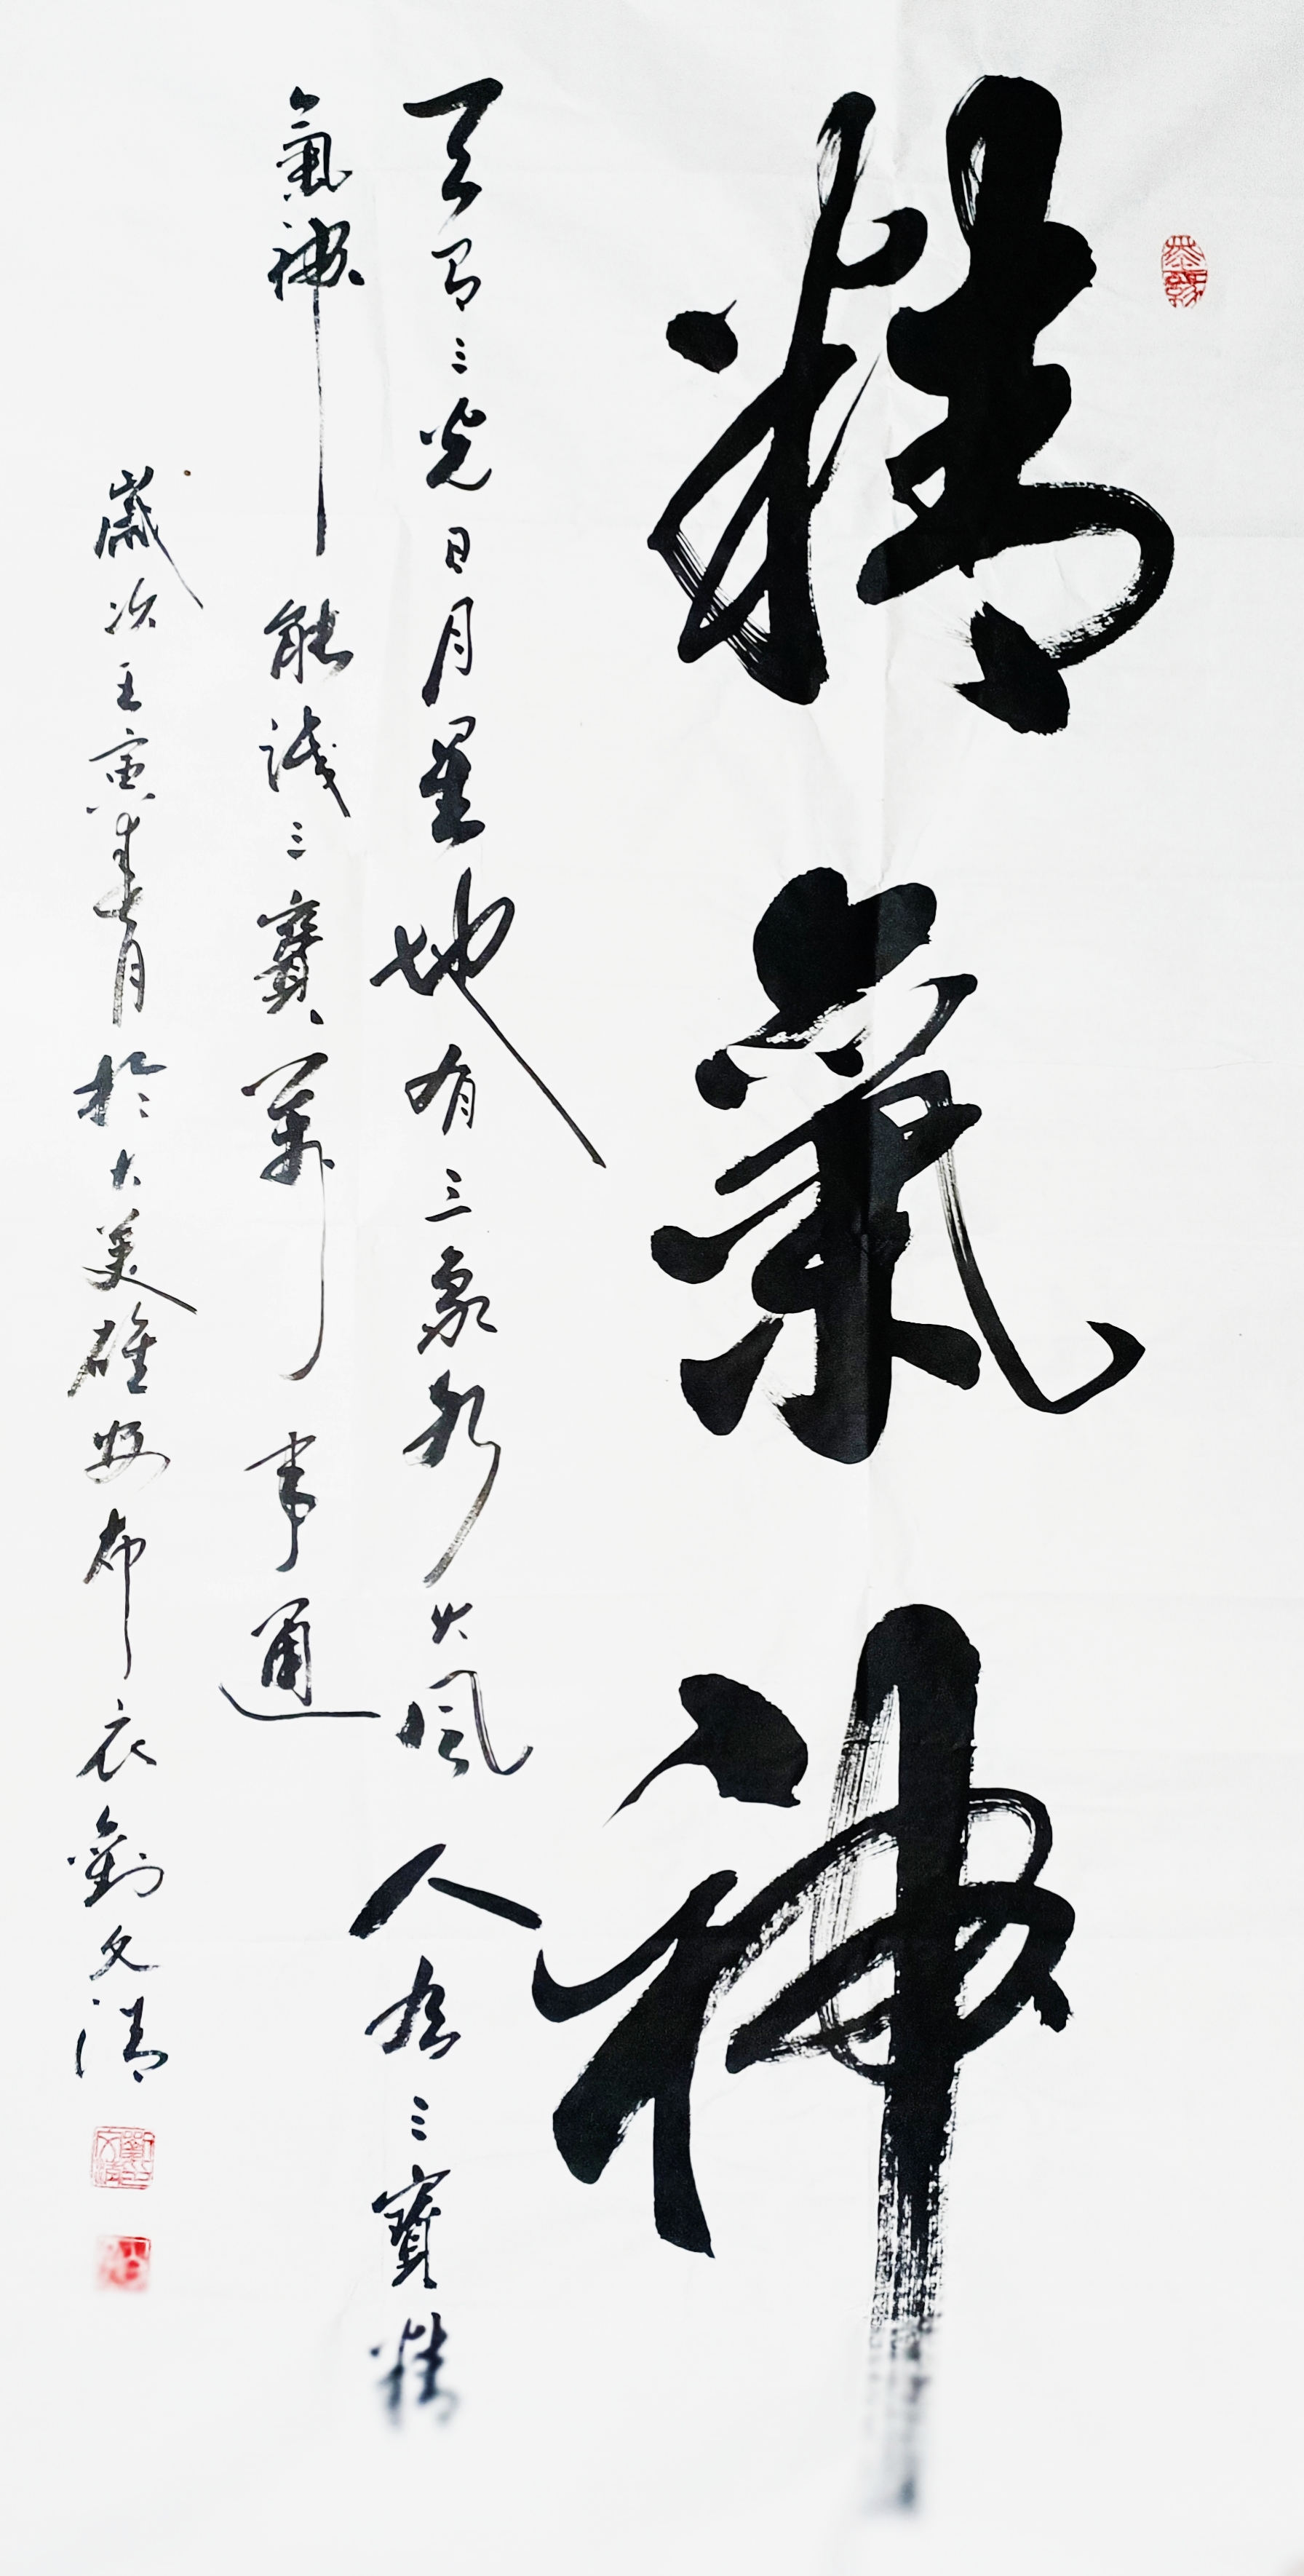 精氣神
天有三光日月星地有三象水火風人有三寶精
氣神能識三寶萬事通
歲次壬寅年七月於大美雄安布衣劉文清